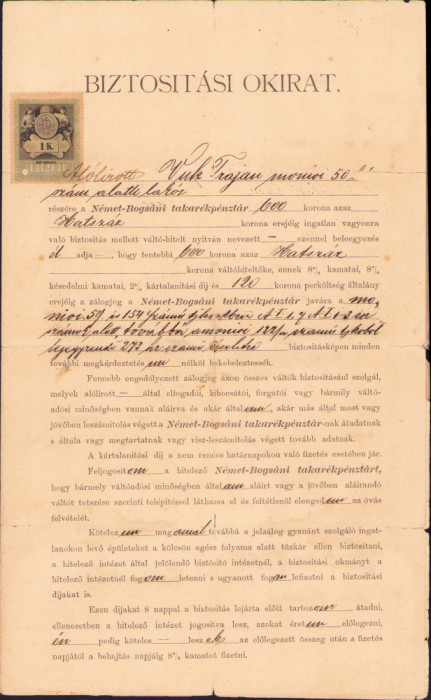 BIZTOSITÁSI OKIRAT.
1 K.
Alólirott Vuk Trajan monioi 50
szám alatti lakós
részére a Német-Bogsáni takarékpénztár 600 korona azaz
Hatszáz korona erejéig ingatlan vagyonra
való biztositás mellett váltó-hitelt nyitván nevezett — ezennel beleegyezés
ét adja —, hogy fentebbi 600 korona azaz Hatszáz
korona váltóhiteltőke, ennek 8% kamatai, 8%
késedelmi kamatai, 2% kártalanitási dij és 120 korona perköltség általány
erejéig a zálogjog a Német-Bogsáni takarékpénztár javára a mo-
nioi 59 és 154 számú tjkvben A I
számok alatt a monioi 122 számú tjkvből
272 számú biztositásképen minden
további megkérdeztetés em nélkül bekebeleztessék.
Fennebb engedélyezett zálogjog azon összes váltók biztositásául szolgál,
melyek alólirott — által elfogadói, kibocsátói, forgatói vagy bármily váltó-
adósi minőségben vannak aláirva és akár által am, akár más által most vagy
jövőben leszámitolás végett a Német-Bogsáni takarékpénztár-nak átadatnak
s általa vagy megtartatnak vagy visz-leszámitolás végett tovább adatnak.
A kártalanitási dij a nem rendes határnapokon való fizetés esetében jár.
Feljogosit om a hitelező Német-Bogsáni takarékpénztárt,
hogy bármely váltóadósi minőségben által am aláirt vagy a jövőben aláirandó
váltót tetszése szerinti telepitéssel láthassa el és feltétlenül elenged em az óvás
felvételét.
Kötelez em mag amat továbbá a jelzálog gyanánt szolgáló ingat-
lanokon levő épületeket a kölcsön egész folyama alatt tüzkár ellen biztositani,
a hitelező intézet által jelölendő biztositó intézetnél, a biztositási okmányt a
hitelező intézetnél fog om letenni s ugyanott fog om lefizetni a biztositási
dijakat is.
Ezen dijakat 8 nappal a biztositás lejárta előtt tartoz om átadni,
ellenesetben a hitelező intézet jogositva lesz, azokat éret em előlegezni,
én pedig köteles — lesz ek az előlegezett összeg után a fizetés
napjától a behajtás napjáig 8% kamatot fizetni.